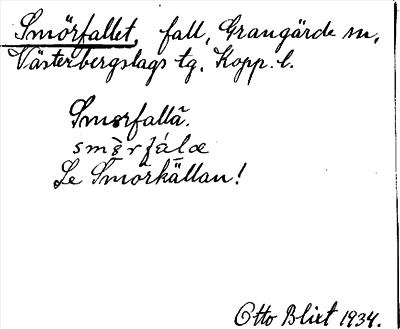 Smörfallet, fall, Grangärde sn,
Västerbergslags tg. Kopp. l.
Smörfallä.
Se Smörkällan!
Otto Blixt 1934.